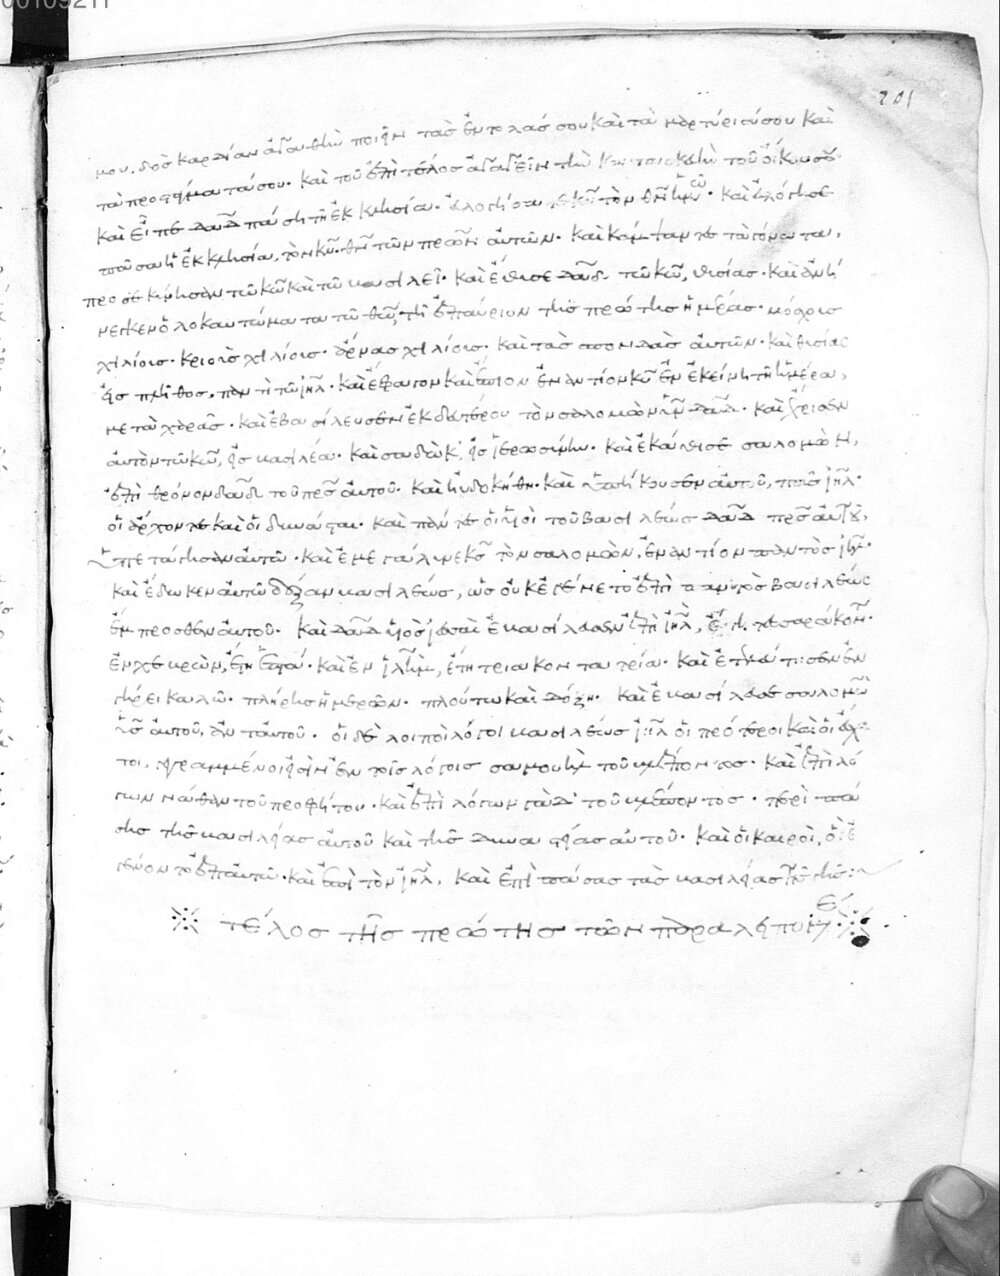 00109211
201
μου, δὸς καρδίαν ἀγαθὴν ποιεῖν τὰς ἐντολάς σου καὶ τὰ μαρτύριά σου καὶ
τὰ προστάγματά σου. καὶ τοῦ ἐπὶ τέλος ἀγαγεῖν τὴν κατασκευὴν τοῦ οἴκου σου.
καὶ εἶπε δαδ πάσῃ τῇ ἐκκλησία. εὐλογήσατε κν τὸν θν ἡμῶν. καὶ εὐλόγησε
πᾶσα ἡ ἐκκλησία, τὸν κν θν τῶν πρων αὐτῶν. καὶ κάμψαντες τὰ γόνατα,
προσεκύνησαν τῶ κω καὶ τῶ βασιλεῖ. καὶ ἔθυσε δαδ τῶ κω, θυσίας. καὶ ἀνή
νεγκεν ὁλοκαυτώματα τῶ θω, τῇ ἐπαύριον τῆς πρώτης ἡμέρας. μόσχους
χιλίους. κριοὺς χιλίους. ἄρνας χιλίους. καὶ τὰς σπονδὰς αὐτῶν. καὶ θυσίας
εἰς πλῆθος, παντὶ τῶ ιηλ. καὶ ἔφαγον καὶ ἔπιον ἐναντίον κυ ἐν ἐκείνη τῆ ἡμέρα,
μετὰ χαρᾶς. καὶ ἐβασίλευσεν ἐκ δευτέρου τὸν σολομὼν υν δαδ. καὶ ἔχρισεν
αὐτὸν τῶ κω, εἰς βασιλέα. καὶ σαδὼκ, εἰς ἱερωσύνην. καὶ ἐκάθισε σολομὼν,
ἐπὶ θρόνον δαδ τοῦ πρς αὐτοῦ. καὶ ηὐδοκήθη. καὶ ἐπήκουσεν αὐτοῦ, πᾶς ιηλ.
οἱ ἄρχοντες καὶ οἱ δυνάσται. καὶ πάντες οἱ υἱοὶ τοῦ βασιλέως δαδ πρς αὐτοῦ,
ὑπετάγησαν αὐτῶ. καὶ ἐμεγάλυνε κς τὸν σολομὼν, ἐναντίον παντὸς ιηλ.
καὶ ἔδωκεν αὐτῶ δόξαν βασιλέως, ὡς οὐκ ἐγένετο ἐπὶ παντὸς βασιλέως
ἔμπροσθεν αὐτοῦ. καὶ δαδ υἱὸς ἰεσσαὶ ἐβασίλευσεν ἐπὶ ιηλ, ἔτη τεσσαράκοντ.
ἐν χεβρὼν, ἔτη ἑπτά. καὶ ἐν ιλημ, ἔτη τριάκοντα τρία. καὶ ἐτελεύτησεν ἐν
γήρει καλῶ. πλήρης ἡμερῶν. πλούτω καὶ δόξη. καὶ ἐβασίλευσε σολομὼν
υς αὐτοῦ, ἀντ αὐτοῦ. οἱ δὲ λοιποὶ λόγοι βασιλέως δαδ οἱ πρότεροι καὶ οἱ ἔσχα
τοι, γεγραμμένοι εἰσὶν ἐν τοῖς λόγοις σαμουὴλ τοῦ βλέποντος. καὶ ἐπὶ λό
γων νάθαν τοῦ προφήτου. καὶ ἐπὶ λόγων γὰδ τοῦ βλέποντος. περὶ πάσης
της τῆς βασιλείας αὐτοῦ καὶ τῆς δυναστείας αὐτοῦ. καὶ οἱ καιροὶ, οἳ ἐ
γένοντο ἐπ αὐτῶ. καὶ ἐπὶ τὸν ιηλ, καὶ ἐπὶ πάσας τὰς βασιλείας τῆς γῆς:
τέλος τῆς πρώτης τῶν παραλειπομένων